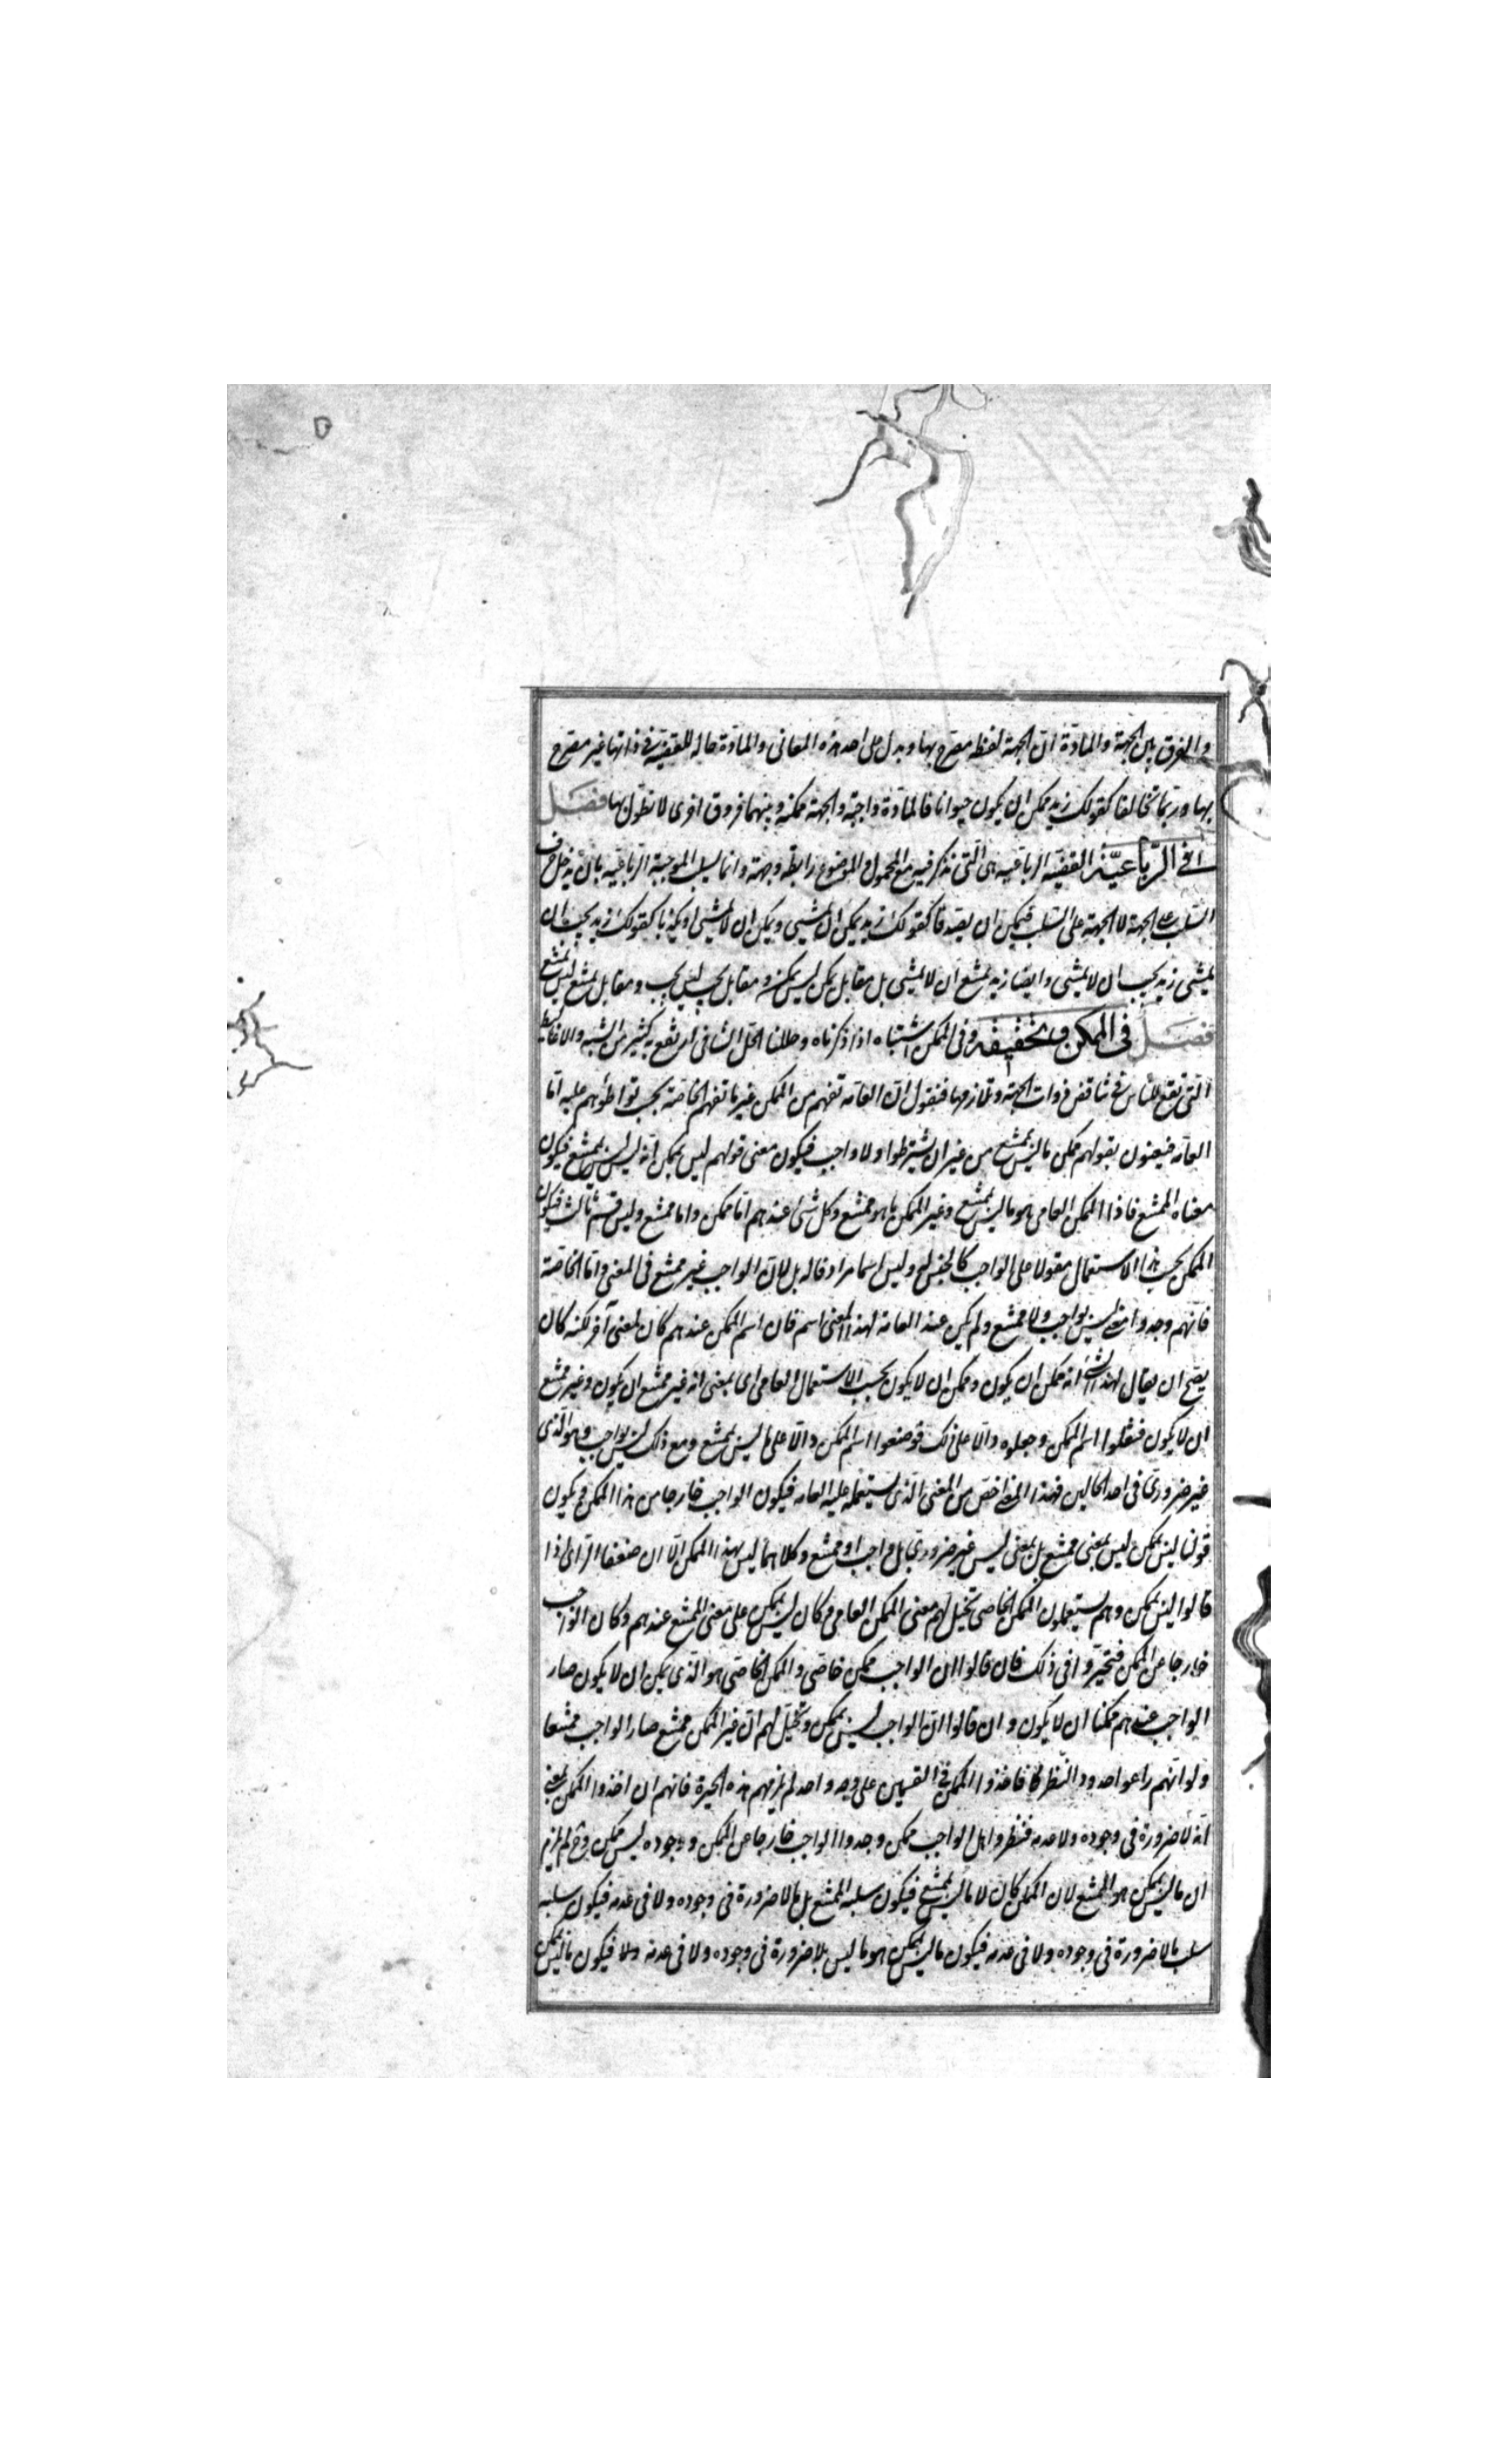 والفرق بين الجهة والمادّة انّ الجهة لفظ مصرح بها ويدل على احد هذه المعانى والمادّة حاله للقضيّة فى ذاتها غير مصرح
بها وربّما تخالفا كقولك زيد يمكن ان يكون حيوانا فالمادّة واجبة والجهة ممكنة وبينهما فروق اخرى لا نطوّل بها فصل
فى الرباعيّة القضيّة الرباعيّة هى الّتى تذكر فيها مع المحمول والموضوع رابطة وجهة وانما يسلب الموجبة الرباعيّة بان يدخل حرف
السّلب على الجهة لا الجهة على السّلب فيمكن ان يصدقا كقولك زيد يمكن ان يمشى ويمكن ان لا يمشى او يكذبا كقولك زيد يجب ان
يمشى زيد يجب ان لا يمشى وايضا زيد يمتنع ان لا يمشى بل مقابل يمكن ليس يمكن ومقابل يجب ليس يجب ومقابل يمتنع ليس يمتنع
فصل فى الممكن وتحقيقه وفى الممكن اشتباه اذا ذكرناه وحللنا الحلّ الشافى ارتفع به كثير من الشبه والاغاليط
الّتى تقع للنّاس فى تناقض ذوات الجهة وتلازمها فنقول انّ العامّه تفهم من الممكن غير ما تفهم الخاصّة بحسب تواطؤهم عليه امّا
العامّه فيعنون بقولهم ممكن ما ليس بممتنع من غير ان يشترطوا ولا واجب فيكون معنى قولهم ليس بممكن انّه ليس ليس بممتنع فيكون
معناه الممتنع فاذا الممكن العامى هو ما ليس بممتنع وغير الممكن ما هو ممتنع وكل شئ عندهم امّا ممكن واما ممتنع وليس قسم ثالث فيكون
الممكن بحسب هذا الاستعمال مقولا على الواجب كالجنس له وليس اسما مرادفا له بل لانّ الواجب غير ممتنع فى المعنى وامّا الخاصّة
فانّهم وجدوا معنى ليس بواجب ولا ممتنع ولم يكن عند العامة لهذا المعنى اسم فان اسم الممكن عندهم كان لمعنى آخر لكنه كان
يصحّ ان يقال لهذا الشئ انه ممكن ان يكون وممكن ان لا يكون بحسب الاستعمال العامى اى بمعنى انه غير ممتنع ان يكون وغير ممتنع
ان لا يكون فنقلوا اسم الممكن وجعلوه دالّا على ذلك فوضعوا اسم الممكن دالّا على ما ليس بممتنع ومع ذلك ليس بواجب وهو الّذى
غير ضرورىّ فى احد الحالين فهذا المعنى اخصّ من المعنى الّذى يستعمله عليه العامه فيكون الواجب خارجا من هذا الممكن ويكون
قولنا ليس بممكن ليس بمعنى ممتنع بل بمعنى ليس غير ضرورىّ بل واجب او ممتنع وكلاهما ليس بهذا الممكن الّا ان ضعفاء الرّاى اذا
قالوا ليس بممكن وهم يستعملون الممكن الخاصى تخيّل لهم معنى الممكن العامى وكان ليس بممكن على معنى الممتنع عندهم وكان الواجب
خارجا عن الممكن فتحيّروا فى ذلك فان قالوا ان الواجب ممكن خاصّى والممكن الخاصّى هو الّذى يمكن ان لا يكون صار
الواجب عندهم ممكنا ان لا يكون وان قالوا انّ الواجب ليس بممكن وتخيّل لهم انّ غير الممكن ممتنع صار الواجب ممتنعا
ولو انّهم راعوا حدود النّظر فاخذوا الممكن فى القسمين على وجه واحد لم يلزمهم هذه الحيرة فانهم ان اخذوا الممكن بمعنى
انّه لا ضرورة فى وجوده ولا عدمه فنظروا هل الواجب ممكن وجدوا الواجب خارجا عن الممكن ووجوده ليس بممكن ولم يلزم
ان ما ليس بممكن هو الممتنع لان الممكن كان لا ما ليس بممتنع فيكون سلبه الممتنع بل ما لا ضرورة فى وجوده ولا فى عدمه فيكون سلبه
سلب ما لا ضرورة فى وجوده ولا فى عدمه فيكون ما ليس بممكن هو ما ليس بلا ضرورة فى وجوده ولا فى عدمه ولا فيكون ما ليس بممكن